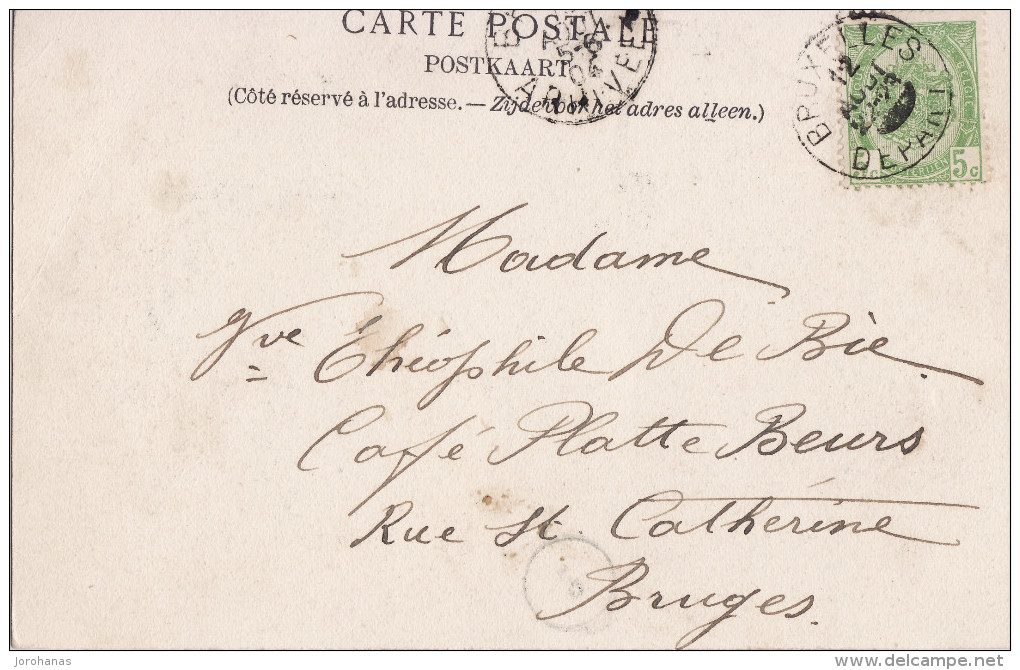 CARTE POSTALE
POSTKAART
(Côté réservé à l'adresse. — Zijde voor het adres alleen.)
5-6
04
ARRIVÉE
BRUXELLES
12
AOUT
DEPART
BELGIE
5c
Madame
Vve Théophile De Bie
Café Platte Beurs
Rue St. Cathérine
Bruges.
jorohanas
delcampe.net